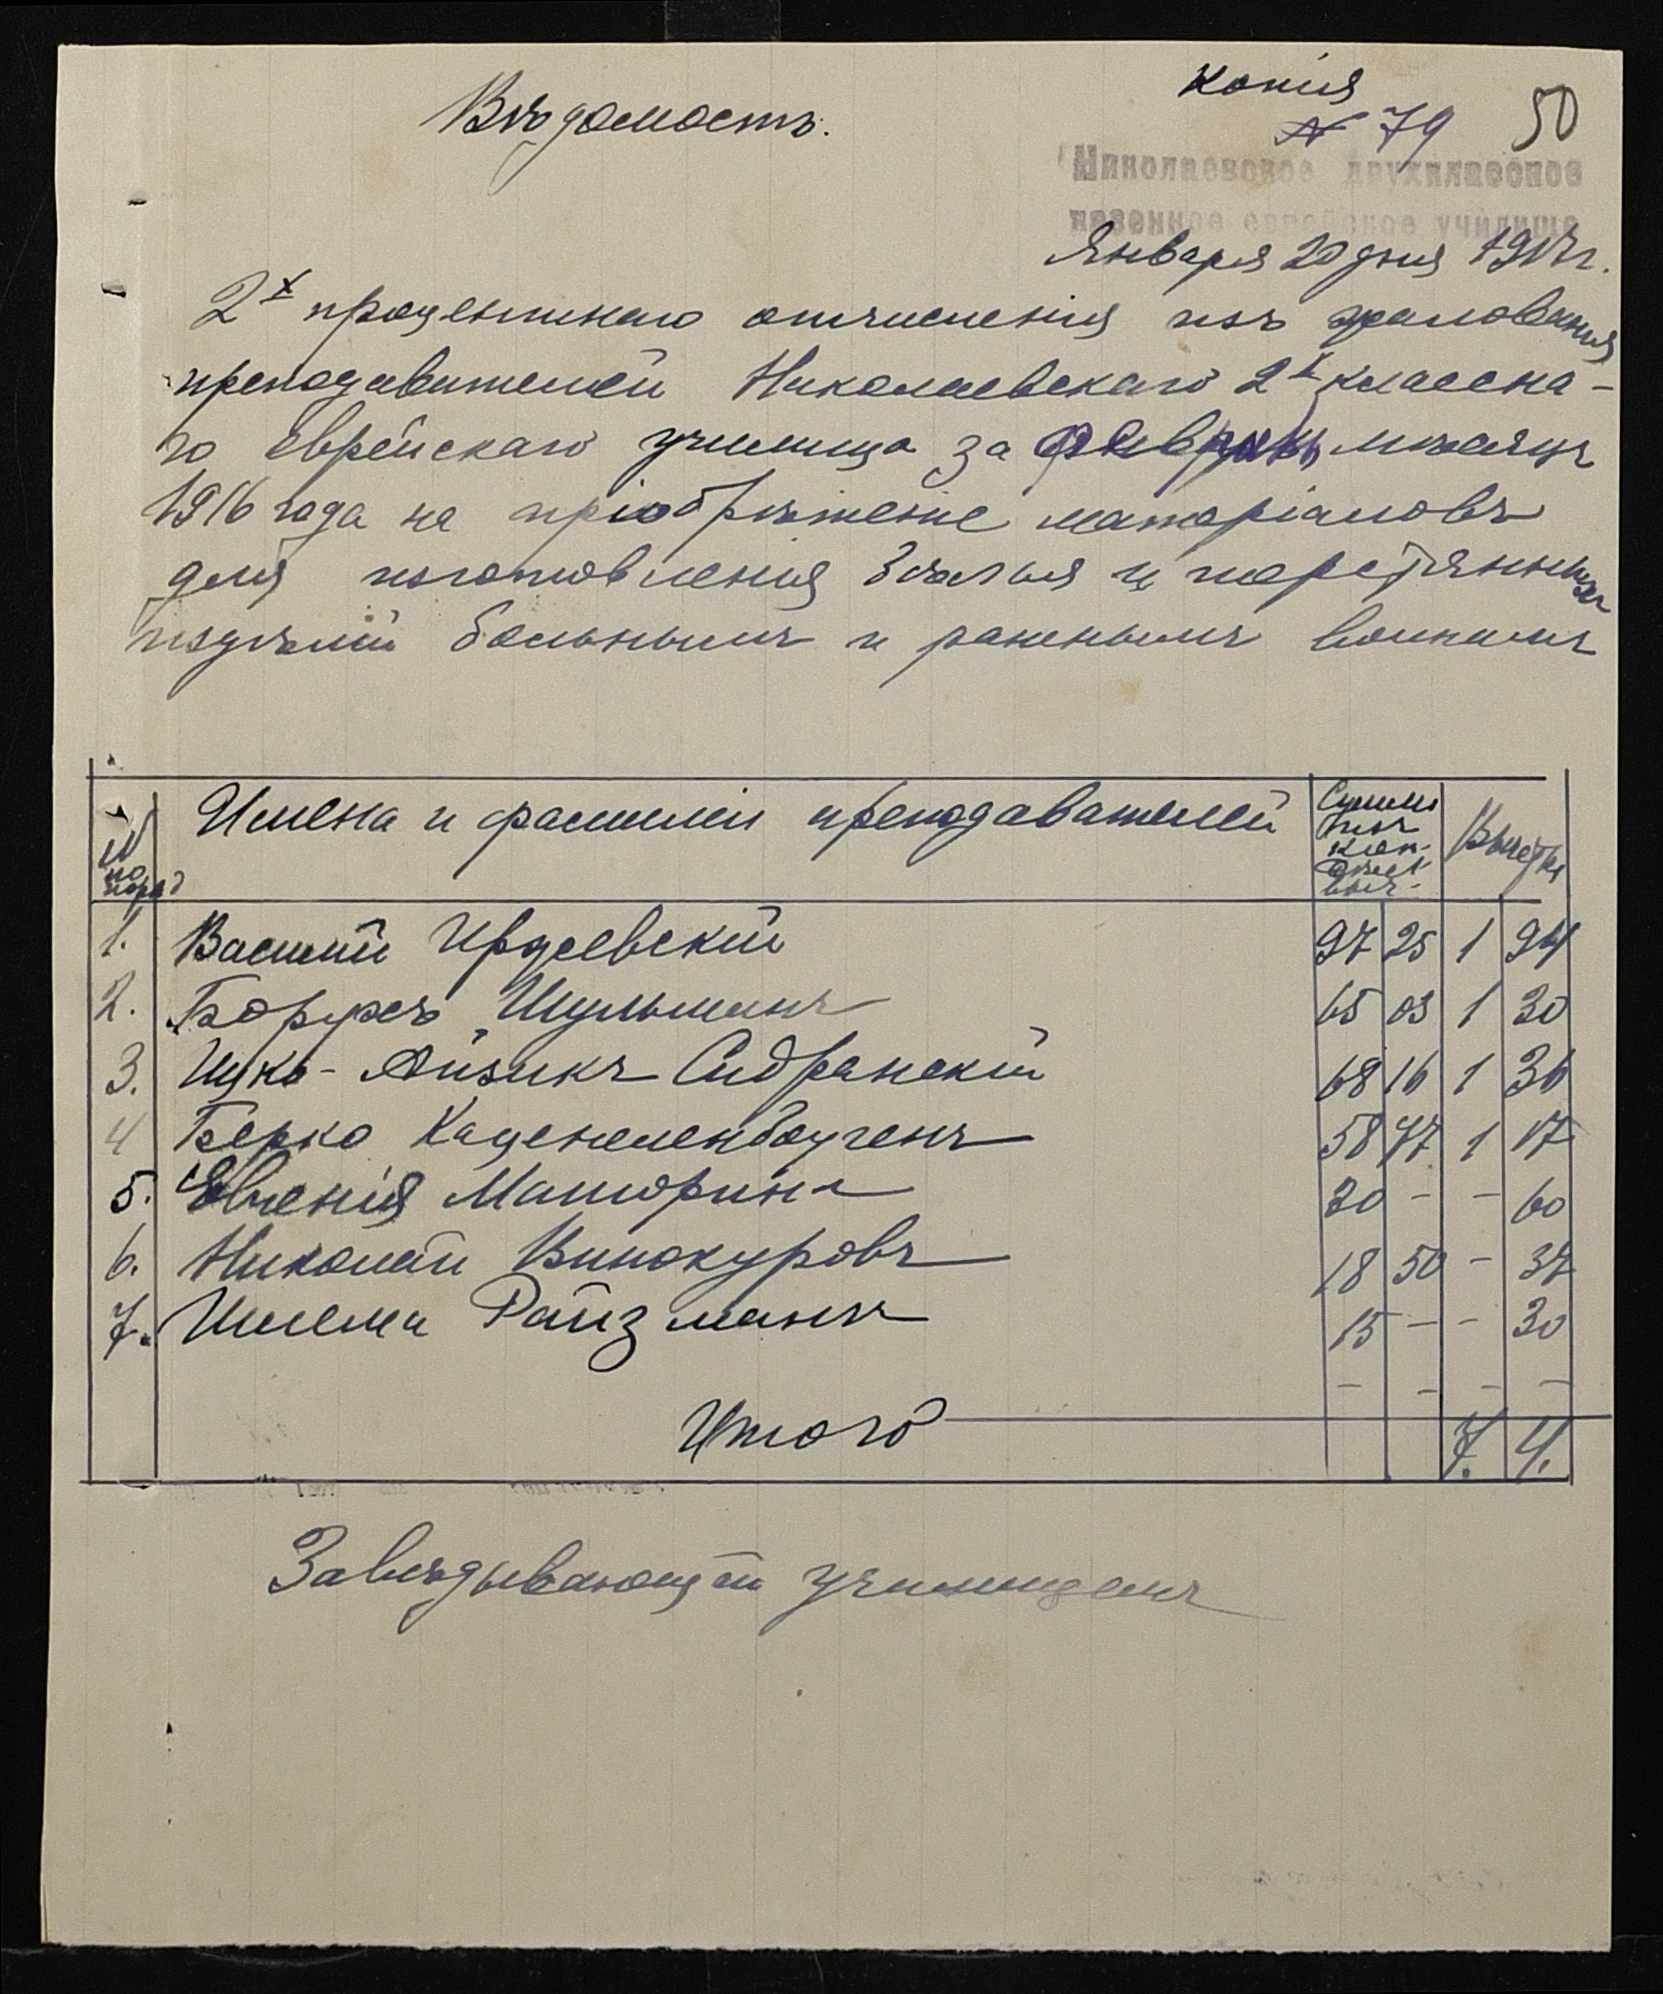 Копія
50
Вѣдомость.
№ 79
Николаевское двухклассное
казенное еврейское училище
Января 20 дня 1917 г.
2х процентнаго отчисленія изъ жалованія
преподавителей Николаевскаго 2х классна-
го Еврейскаго училища за Февраль мѣсяцъ
1916 года на пріобрѣтеніе матеріаловъ
для изготовленія бѣлья и шерстянныхъ
издѣлій больнымъ и раненымъ воинамъ
№ по поряд Имена и фамиліи преподавателей Вычеты
1. Василій Ирдеевскій 97 25 1 94
2. Борухъ Шульманъ 65 03 1 30
3. Ицко-Айзикъ Сидранскій 68 16 1 36
4 Берко Каценеленбоугенъ 58 47 1 17
5. Евгенія Маторина 30 - - 60
6. Николай Винокуровъ 18 50 - 37
7. Шлема Райзманъ 15 - - 30
- - - -
Итого 7. 4.
Завѣдывающій училищемъ